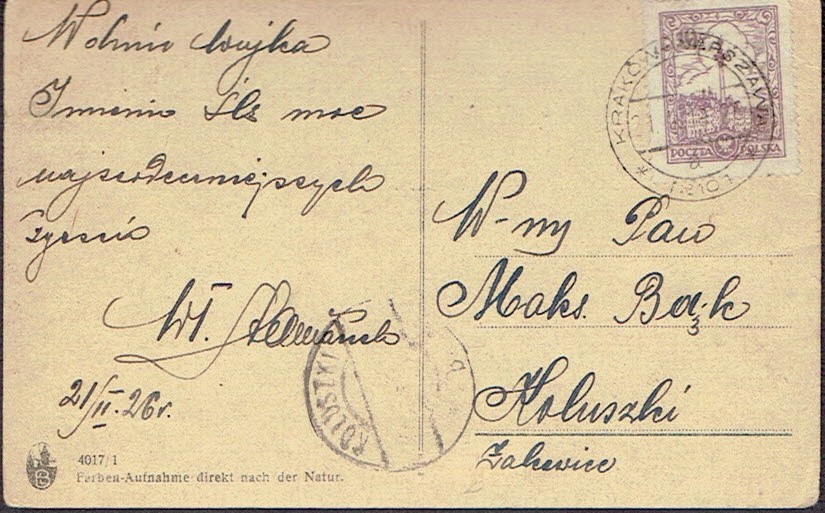 W dniu
Imienin śle moc
najserdeczniejszych
życzeń
Wł.
21/II. 26 r.
4017/1
Farben-Aufnahme direkt nach der Natur.
KRAKÓW WARSZAWA
POCZTA POLSKA
W-ny Pan
Maks. Bąk
Koluszki
KOLUSZKI